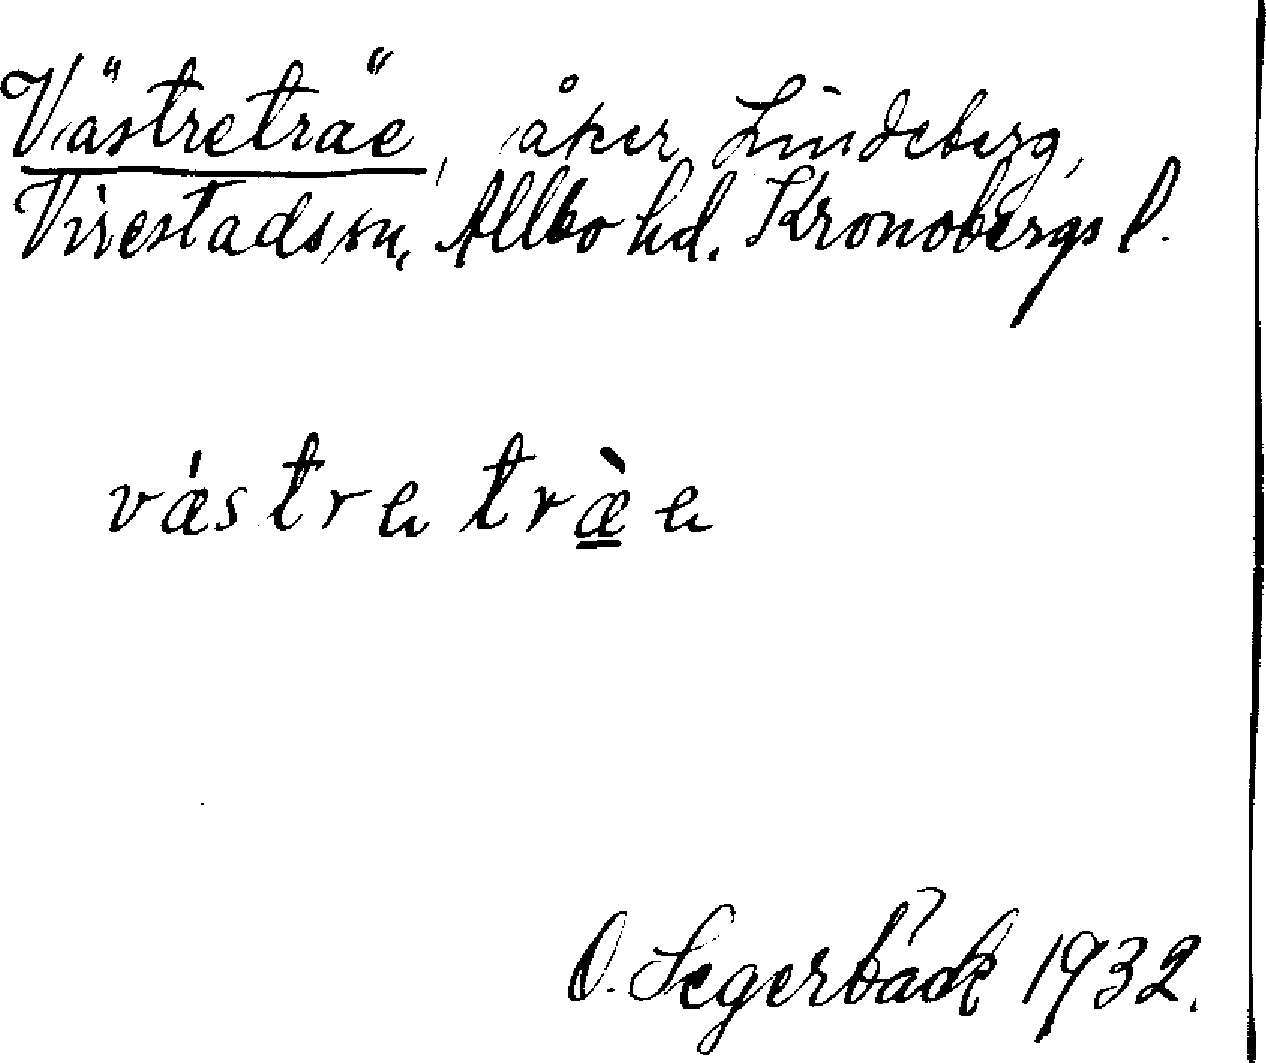 Västreträe, åker, Lindeberg,
Virestads sn, Allbo hd. Kronobergs l.
væ̍stre træ̠̀e
O. Segerbäck 1932.